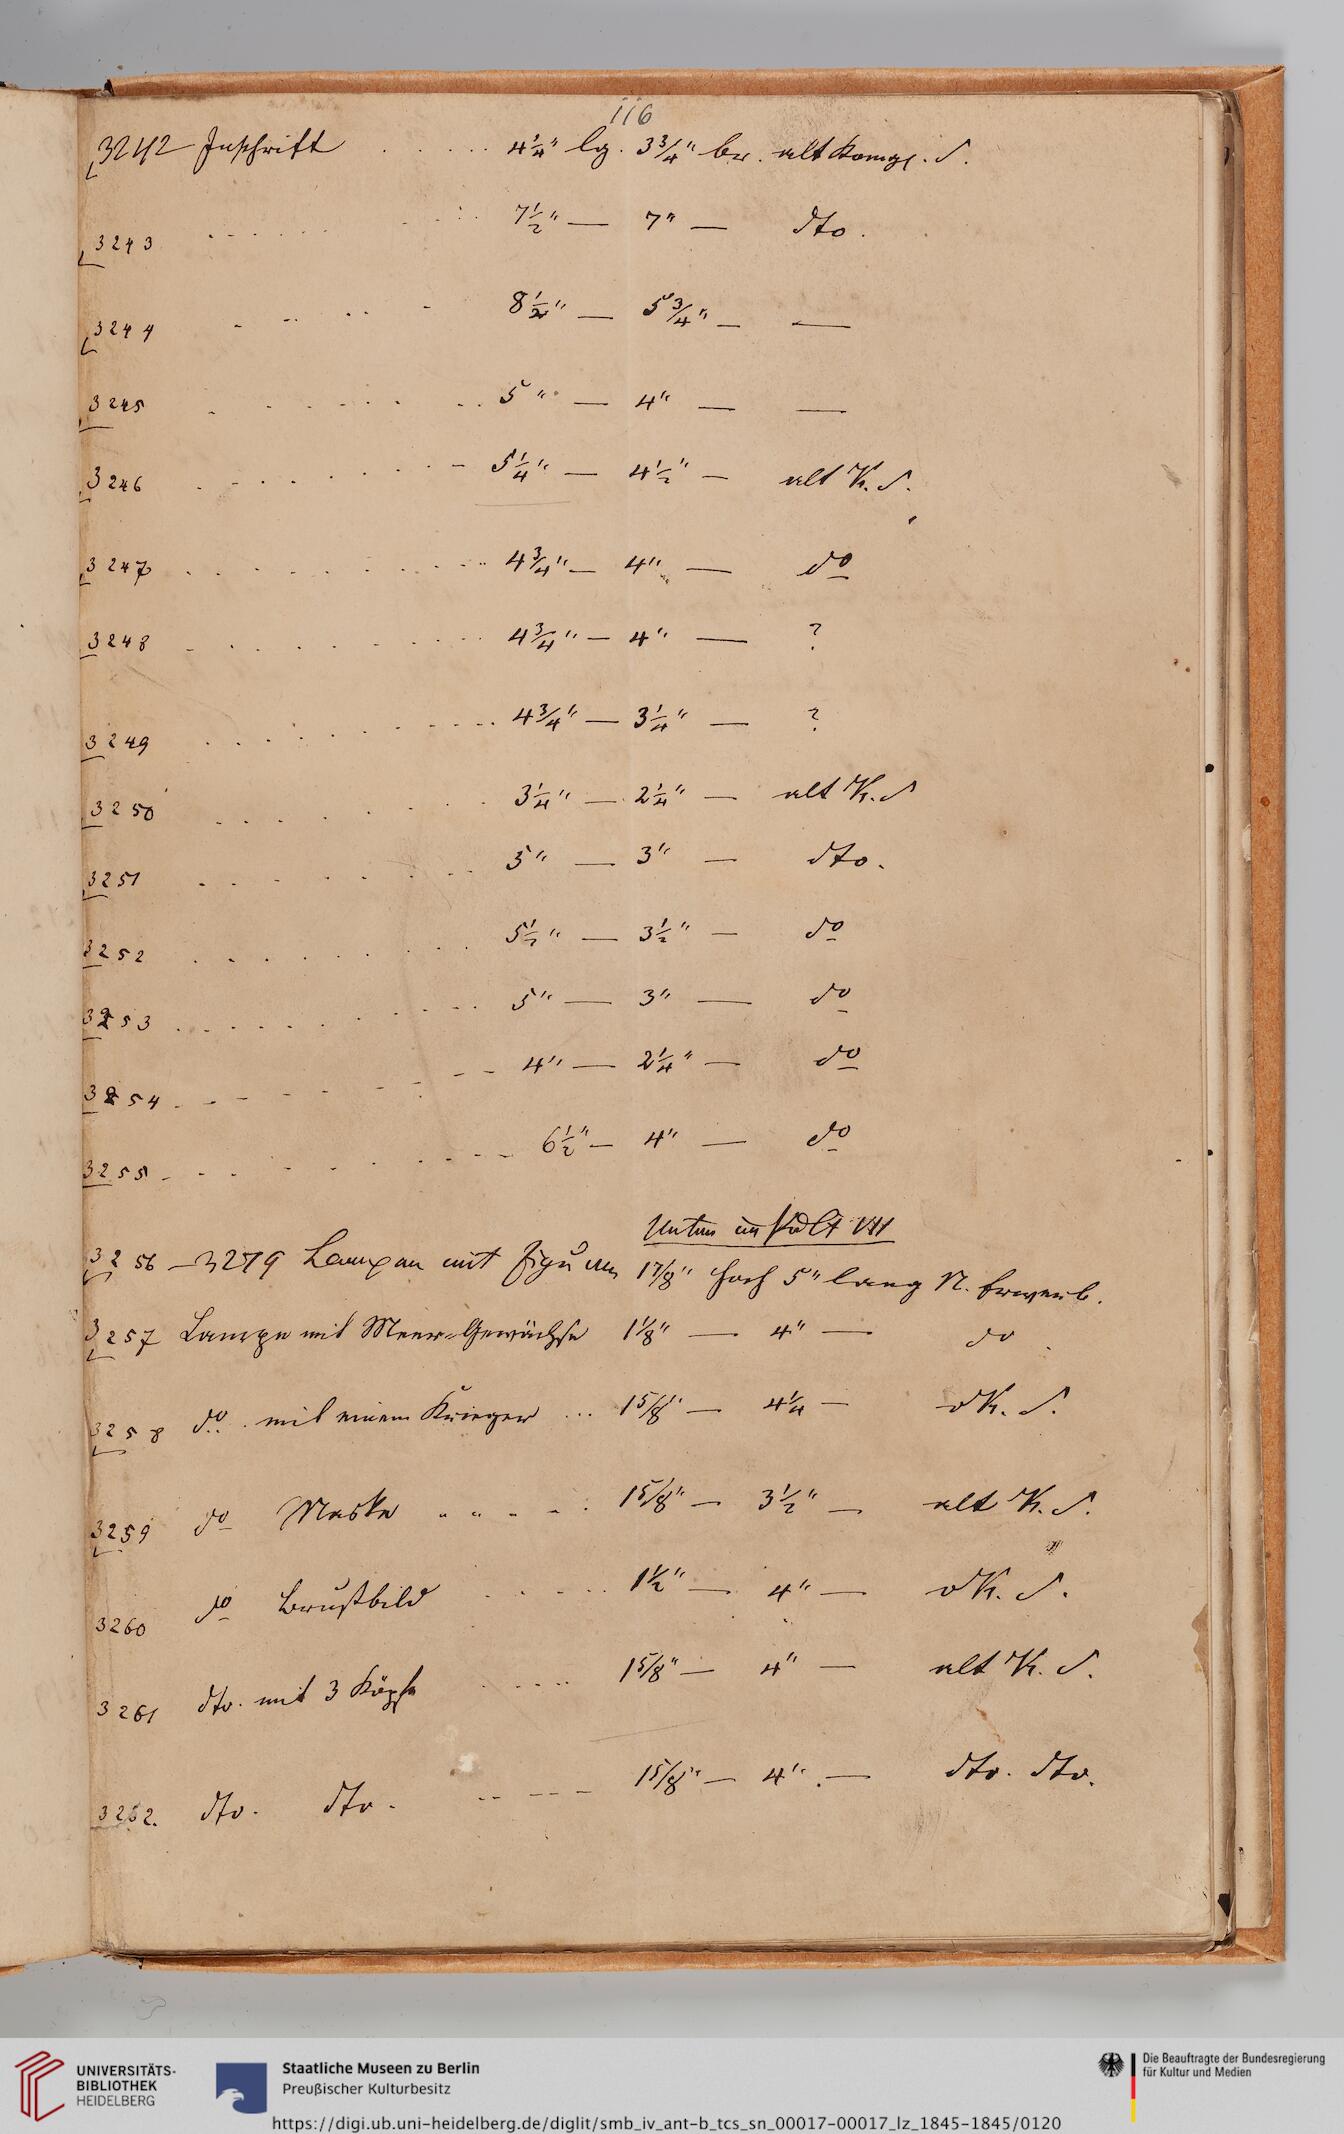 116
3242 Inschrift . . . . . 4 1/4" lg. 3 3/4" br. alt Königl. S.
3243 . . . . . . 7 1/2" — 7" — dto.
3244 . . . . . 8 1/2" — 5 3/4" — —
3245 . . . . . . 5" — 4" — —
3246 . . . . . . 5 1/4" — 4 1/2" — alt K. S.
3247 . . . . . . 4 3/4" — 4" — do
3248 . . . . . . 4 3/4" — 4" — ?
3249 . . . . . . 4 3/4" — 3 1/4" — ?
3250 . . . . . . 3 1/4" — 2 1/4" — alt K. S
3251 . . . . . . 5" — 3" — dto.
3252 . . . . . . 5 1/2" — 3 1/2" — do
3253 . . . . . . 5" — 3" — do
3254 . . . . . . 4" — 2 1/4" — do
3255 . . . . . . 6 1/2" — 4" — do
3256 — 3279 Lampen mit Figuren 1 7/8" hoch 5" lang N. Erwerb.
3257 Lampe mit Meer-Gewächse 1 1/8" — 4" — do
3258 do. mit einem Krieger ... 1 5/8" — 4 1/4 — K. S.
3259 do Maske . . . . . 1 5/8" — 3 1/2" — alt K. S.
3260 do Brustbild . . . . . 1 1/2" — 4" — K. S.
3261 dto. mit 3 Köpfe . . . . . 1 5/8" — 4" — alt K. S.
3262. dto. dto. . . . . . 1 5/8" — 4" — dto. dto.
UNIVERSITÄTS-
BIBLIOTHEK
HEIDELBERG
Staatliche Museen zu Berlin
Preußischer Kulturbesitz
Die Beauftragte der Bundesregierung
für Kultur und Medien
https://digi.ub.uni-heidelberg.de/diglit/smb_iv_ant-b_tcs_sn_00017-00017_lz_1845-1845/0120